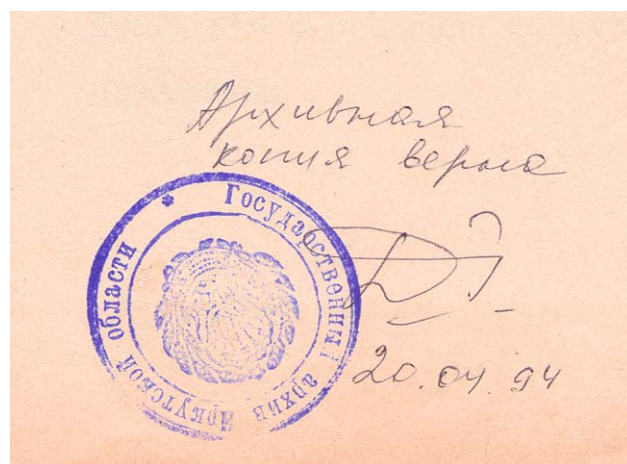 Архивная
копия верна
Государственный архив Иркутской области
20.04.94